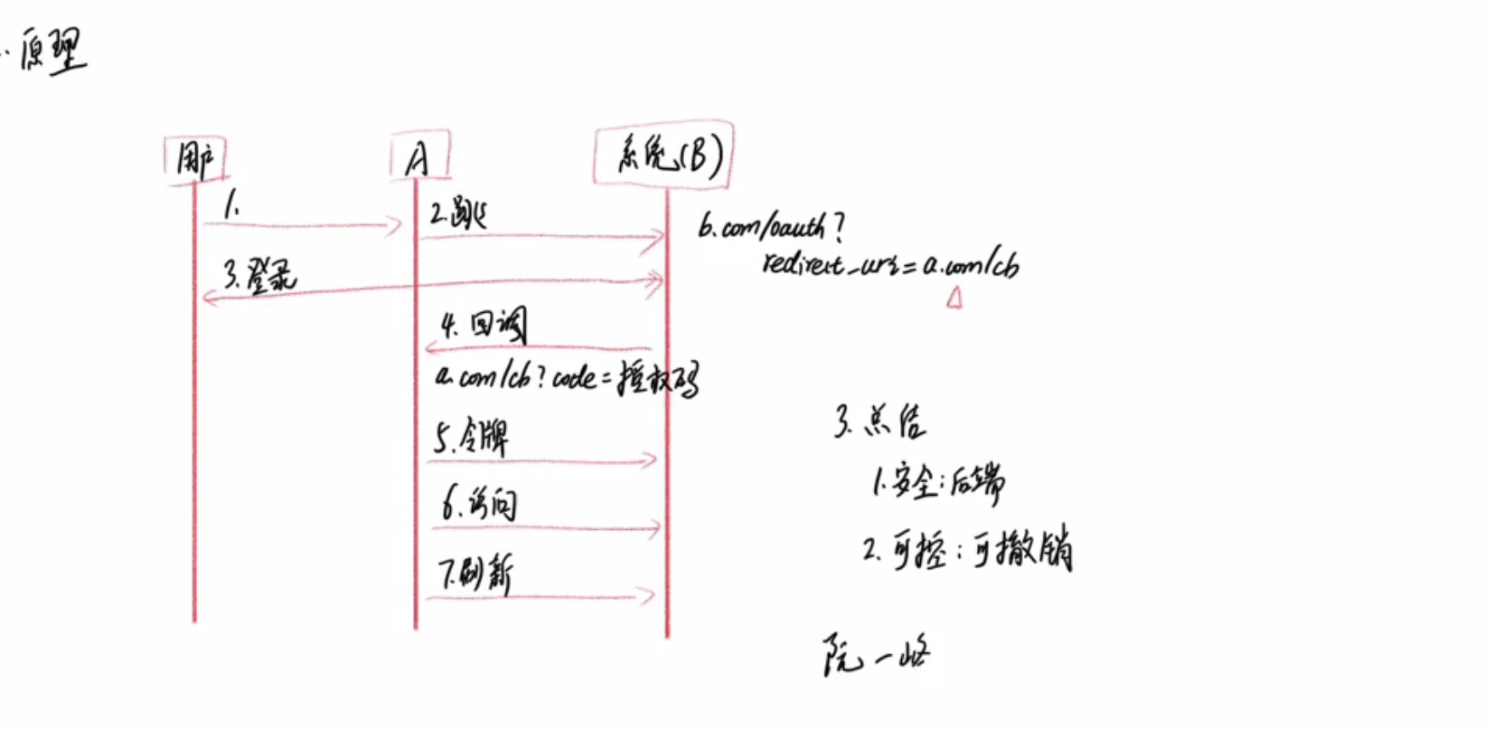 原理
用户
A
系统(B)
1.
2.跳
b.com/oauth?
redirect_uri=a.com/cb
3.登录
4.回调
a.com/cb?code=授权码
5.令牌
6.访问
7.刷新
3.总结
1.安全:后端
2.可控:可撤销
阮一峰